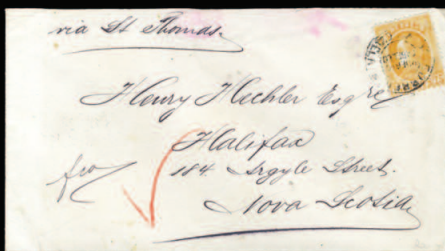 via St Thomas.
Henry Hechler Esqre
Halifax
184 Argyle Street.
Nova Scotia